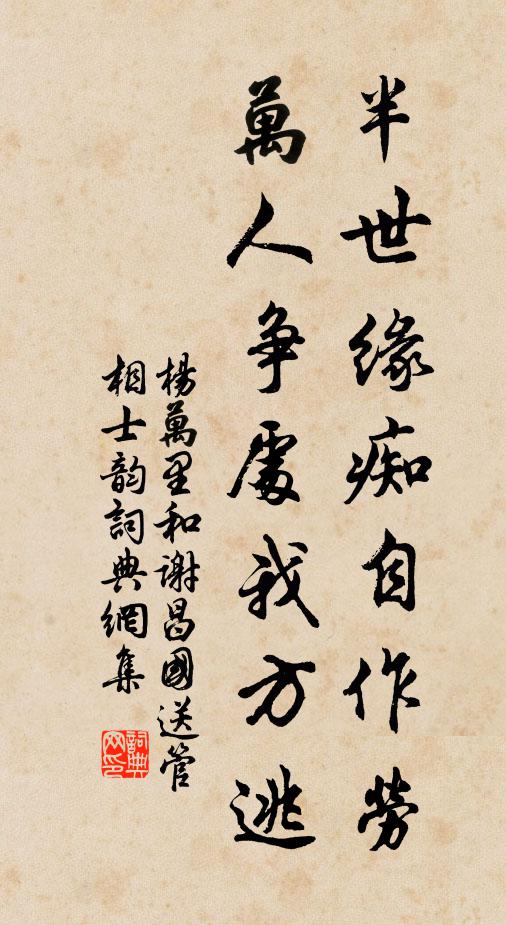 半世緣痴自作勞
萬人争處我方逃
楊萬里和謝昌國送管
相士韵詞典網集
詞典
网印